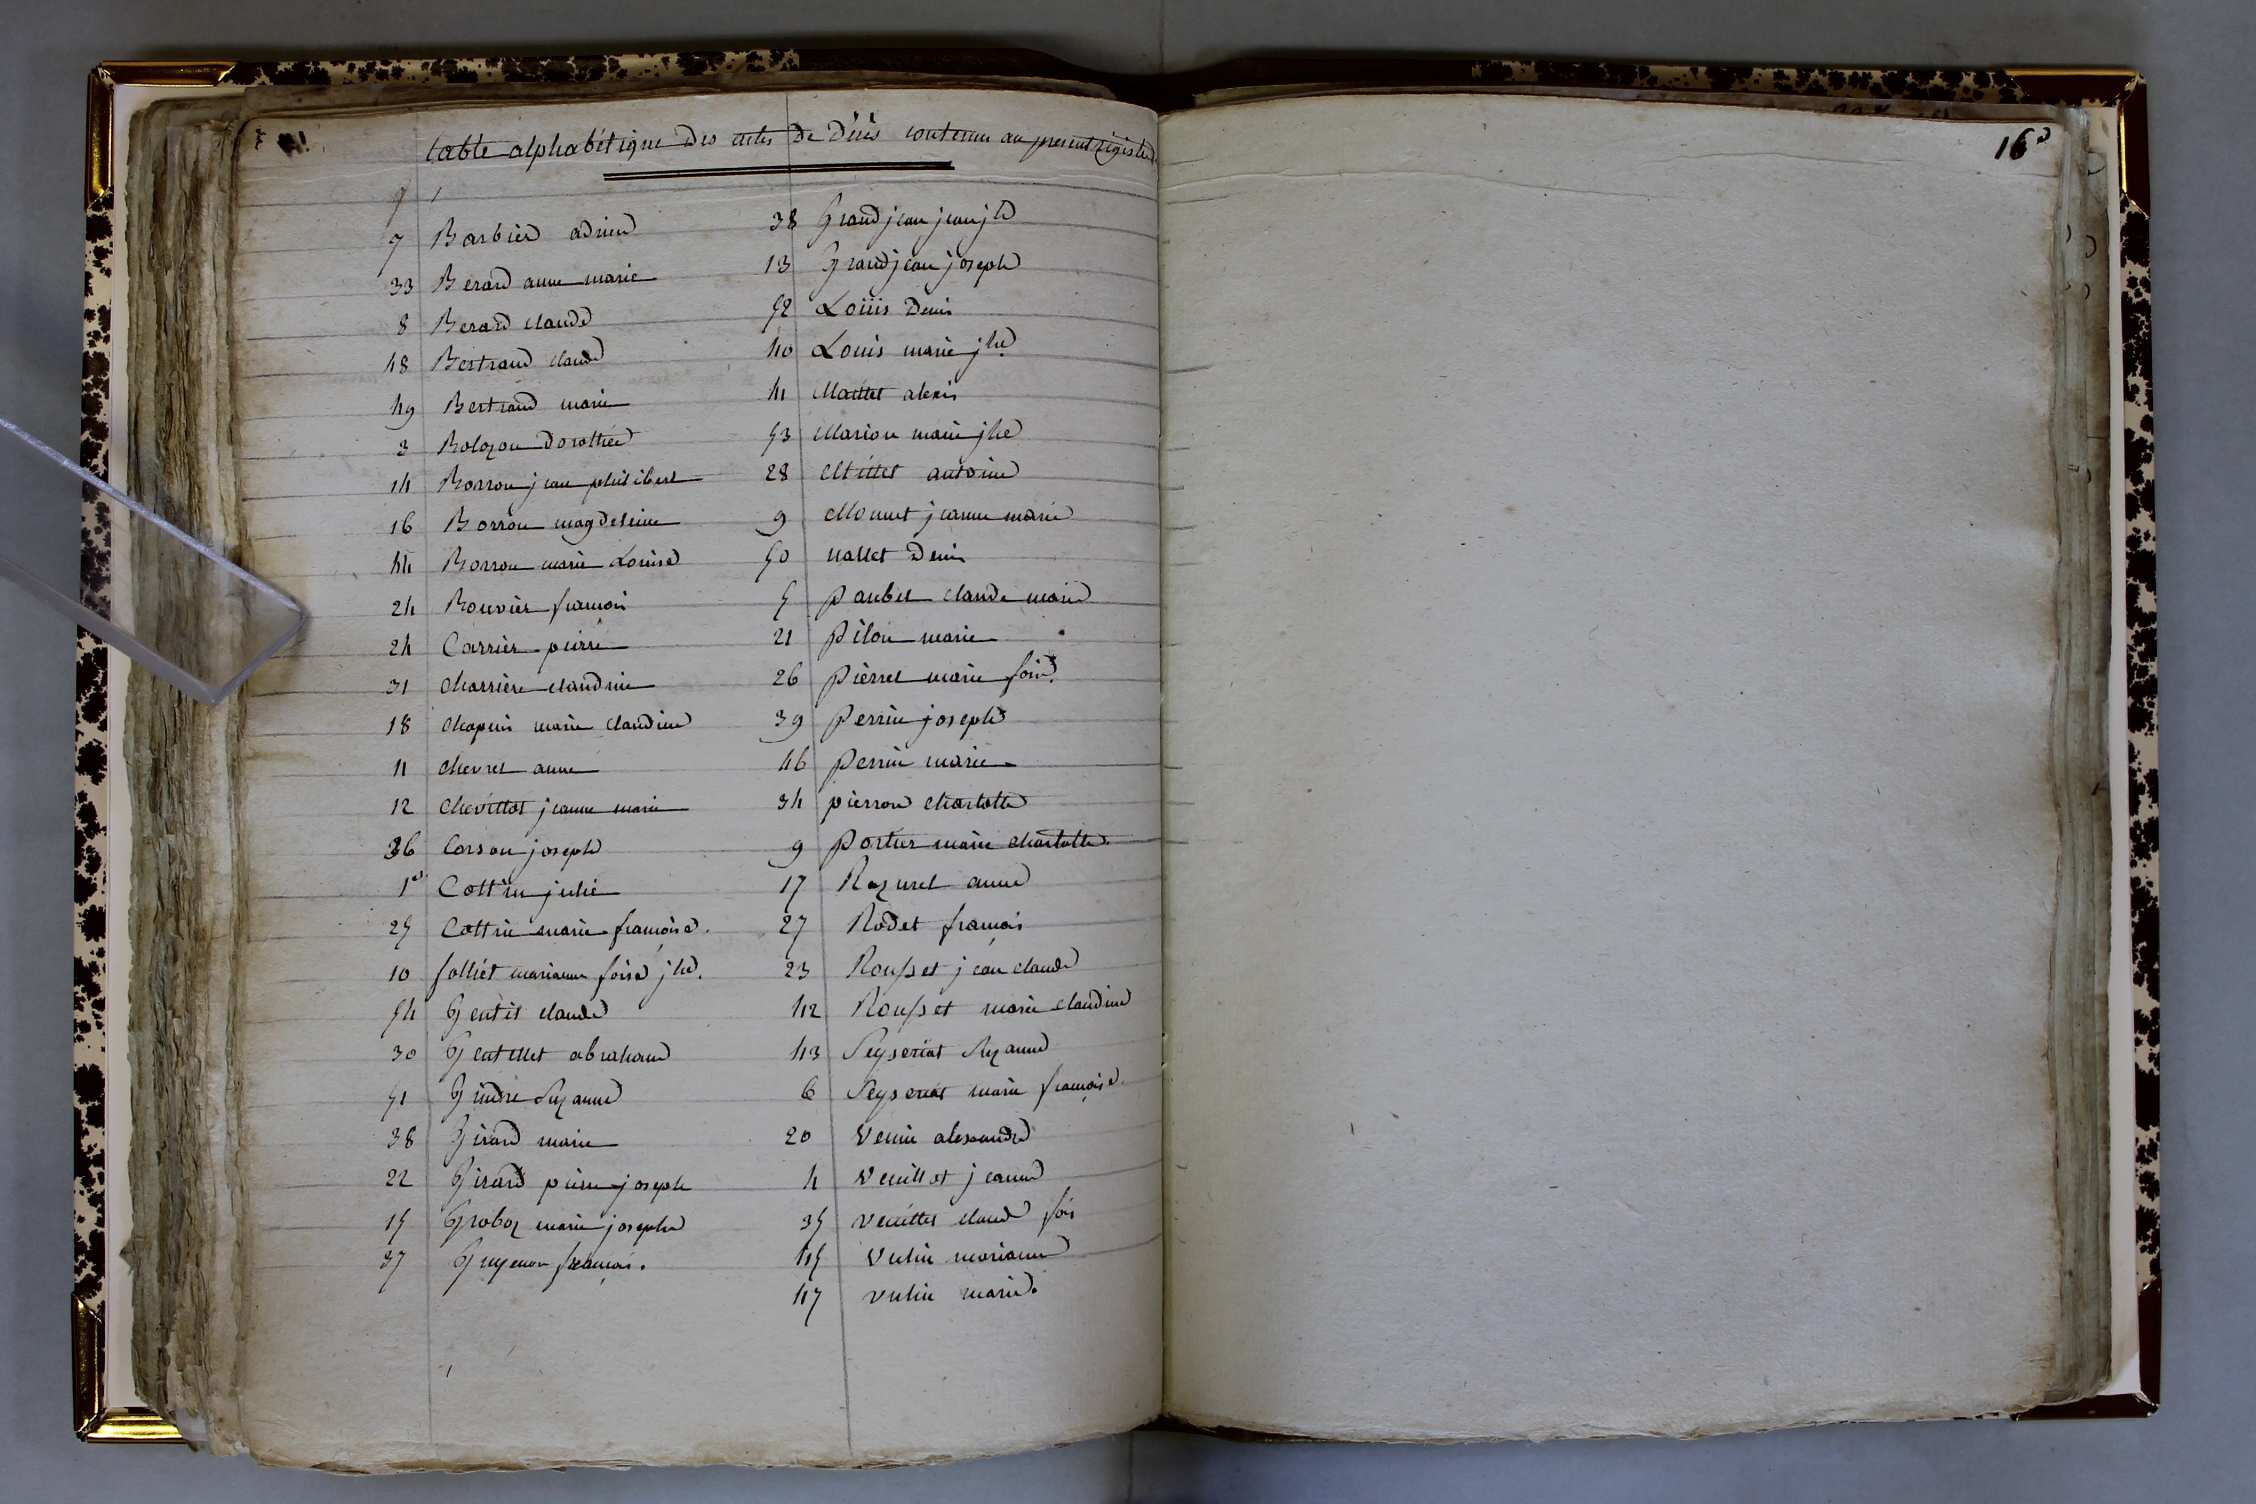 table alphabétique des actes de décès contenu au present régistre
16
7 Barbier adrien
33 Berard anne marie
8 Berard claude
48 Bertrand claude
49 Bertrand marie
3 Bolozon dorothée
14 Borron jean philibert
16 Borron magdeleine
44 Borron marie Louise
24 Bouvier francois
24 Carrier pierre
31 Charrière claudine
18 Chapuis marie claudine
11 Chevret anne
12 Chevillot jeanne marie
36 Corson joseph
1er Cottin julie
25 Cottin marie françoise.
10 folliet marianne foise jhe.
54 Gentit claude
30 Gentillet abraham
51 Gindre Suzanne
38 Girard marie
22 Girard pierre joseph
15 Groboz marie josephe
37 Guyenon françois.
38 Grandjean jean jh
13 Grandjean joseph
52 Loüis Denis
40 Louis marie jhe.
41 Maillet alexis
53 Marion marie jhe
28 Millet antoine
9 Monnet jeanne marie
50 Nallet Denis
5 paubel claude marie
21 pilon marie
26 pièrret marie foise.
39 perrin joseph
46 perrin marie
34 pierron charlotte
9 portier marie charlotte.
17 Razurel anne
27 Rodet françois
23 Rousset jean claude
42 Rousset marie claudine
43 Seyseriat Suzanne
6 Seyseriat marie françoise.
20 Venin alexandre
4 Veuillot jeanne
35 Veuillet claude fois
45 Vulin marianne
47 Vulin marie.